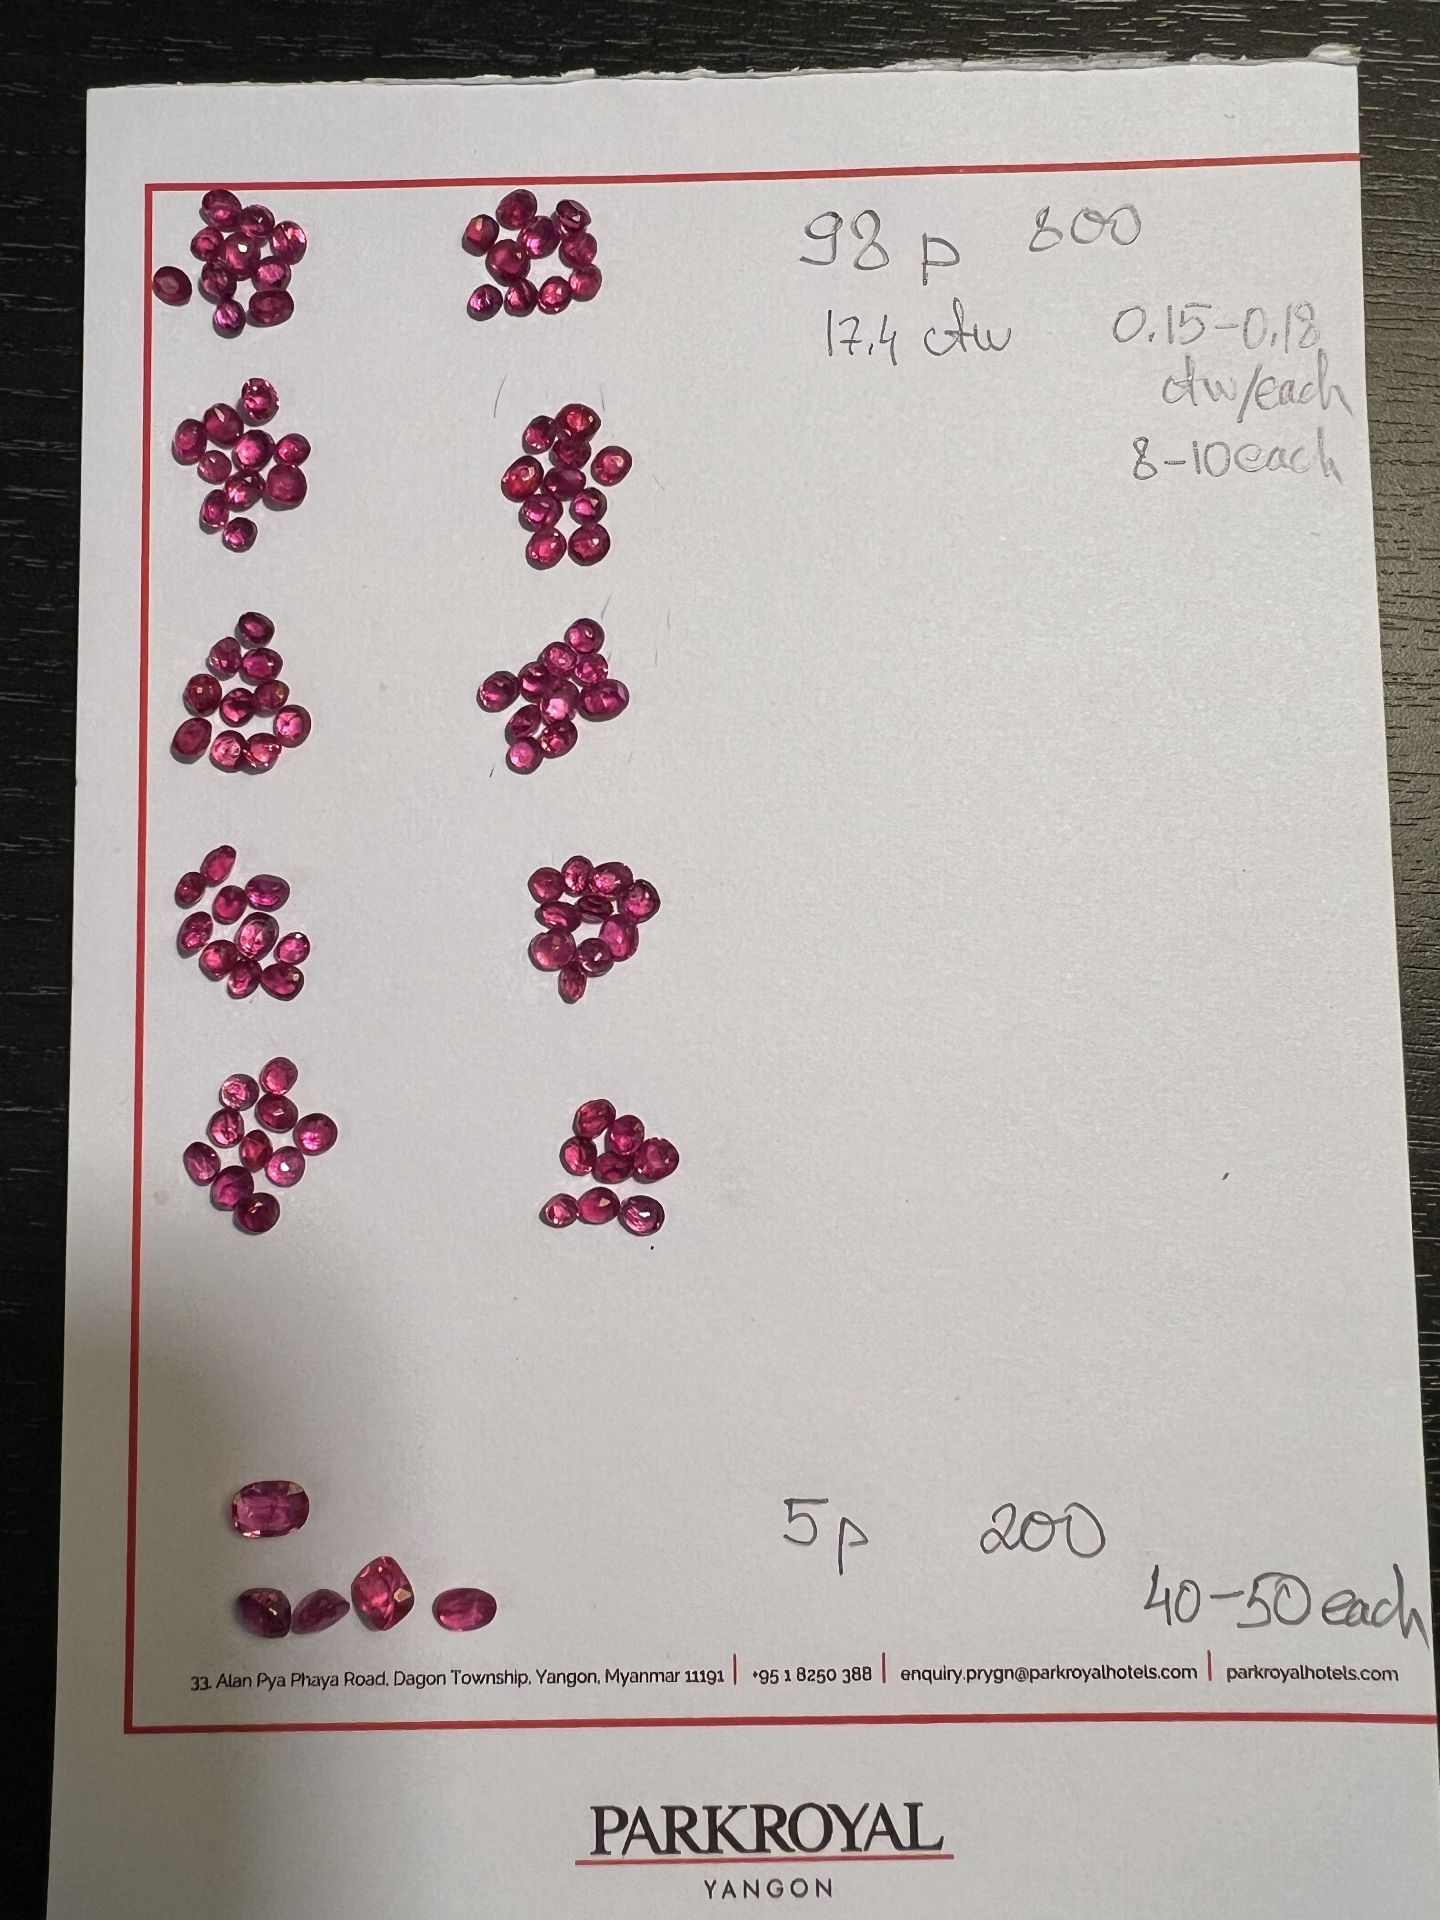 98 p 800
17.4 ctw 0.15-0.18
ctw/each
8-10 each
5p 200
40-50 each
33, Alan Pya Phaya Road, Dagon Township, Yangon, Myanmar 11191 | +95 1 8250 388 | enquiry.prygn@parkroyalhotels.com | parkroyalhotels.com
PARKROYAL
YANGON